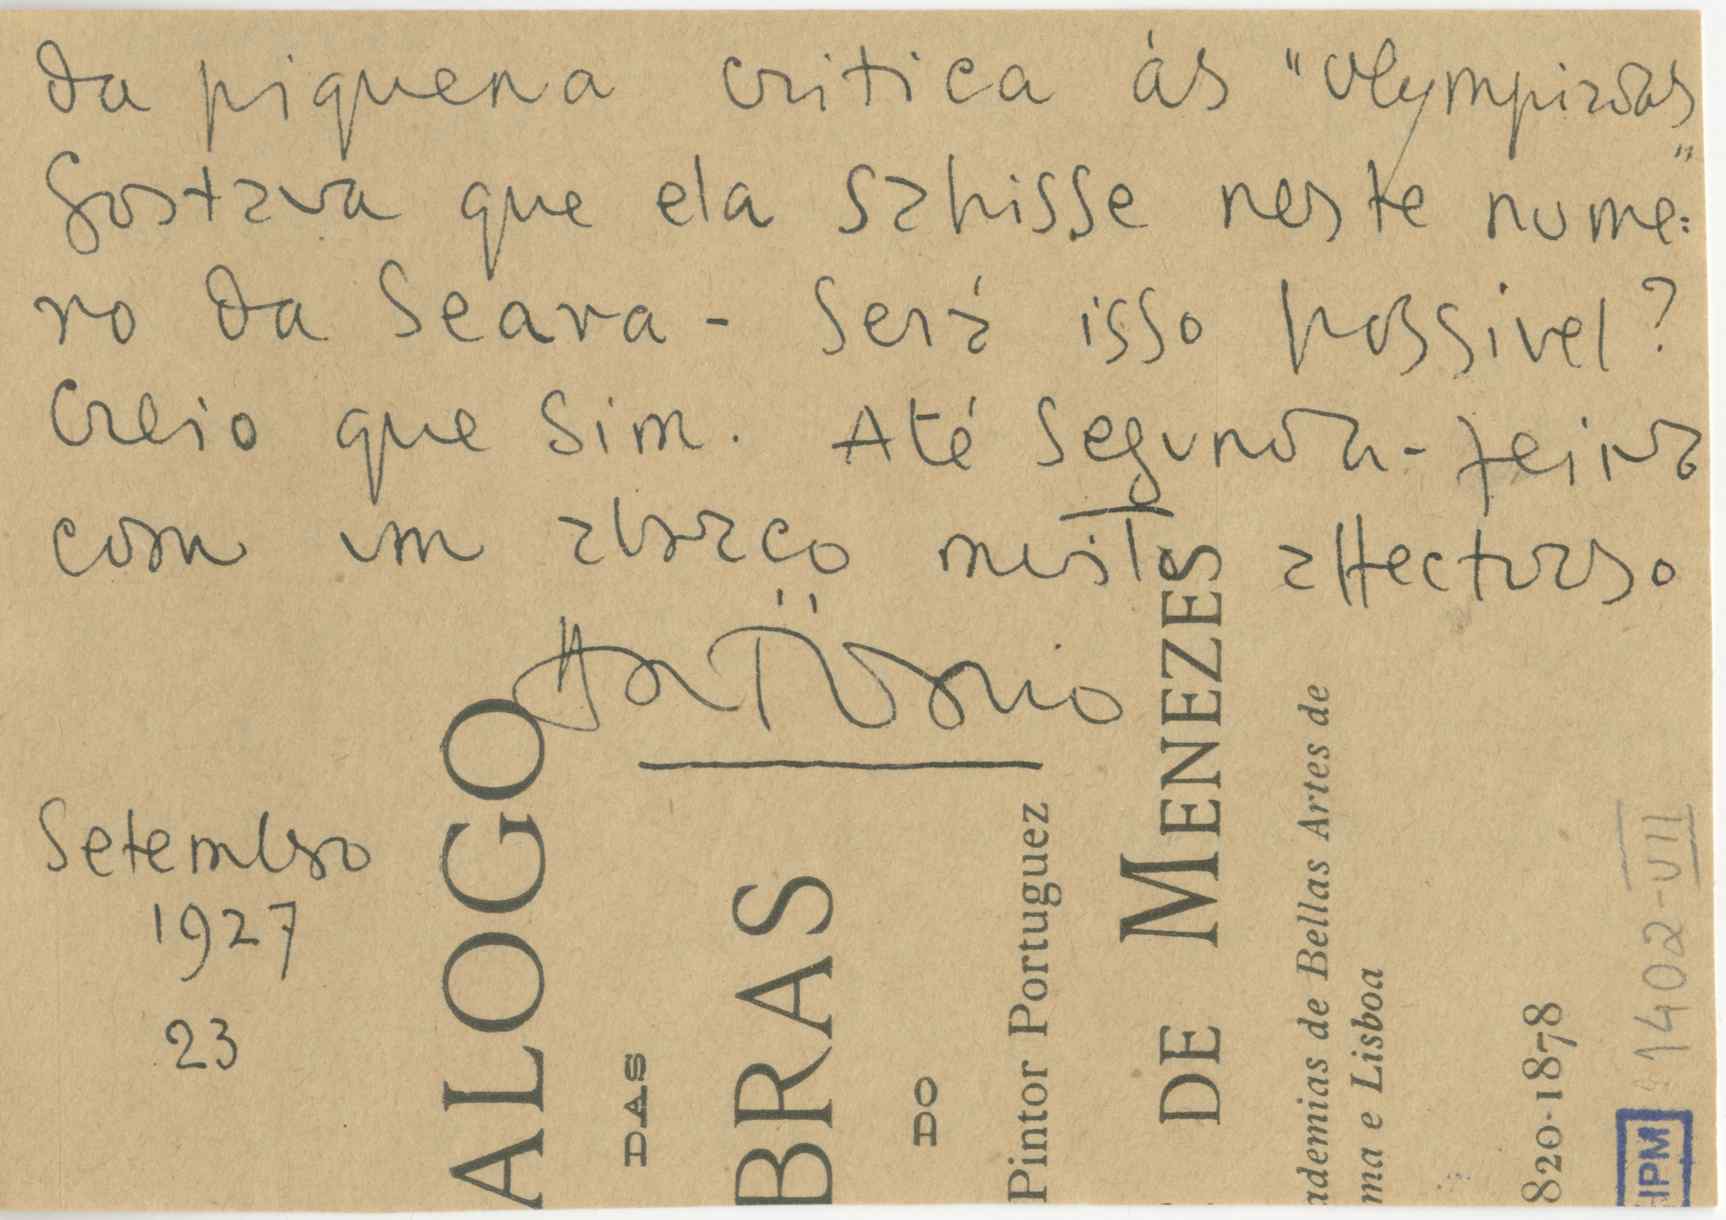 da piquena critica ás "Olympiadas"
Gostava que ela sahisse neste nume:
ro da Seara - Será isso possivel?
Creio que sim. Até Segunda-feira
com um abraço muito affectuoso
António
Setembro
1927
23
ALOGO
DAS
BRAS
DO
Pintor Portuguez
DE MENEZES
ademias de Bellas Artes de
ma e Lisboa
820-1878
1402-VII
HPM